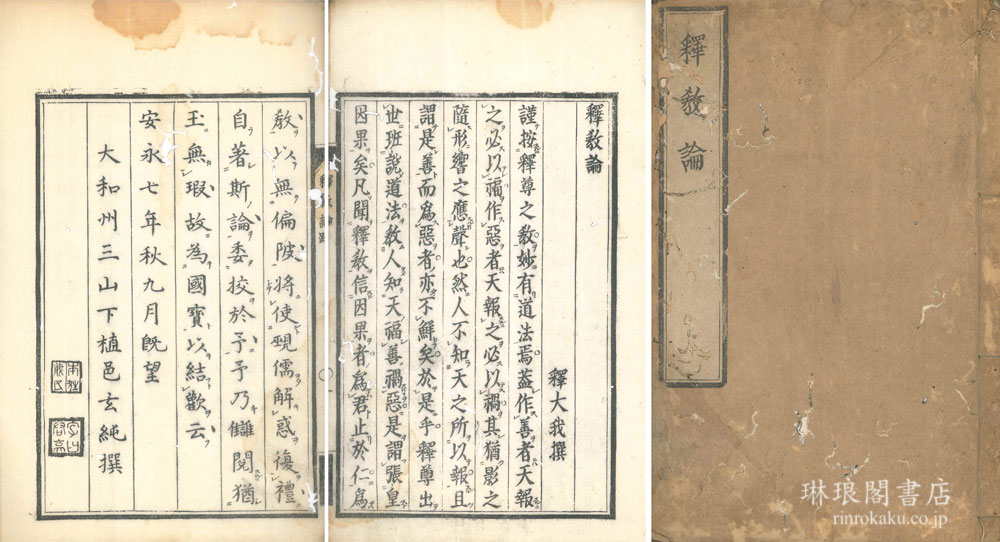 釋教論
釋教論
釋大我撰
謹按釋尊之教妙有道法焉蓋作善者天報
之必以福作惡者天報之必以禍其猶影之
隨形響之應聲也然人不知天之所以報且
謂是善而爲惡者亦不鮮矣於是乎釋尊出
世班說道法教人知天福善禍惡是謂張皇
因果矣凡聞釋教信因果者爲君止於仁爲
教以無偏陂將使儒解惑復禮
自著斯論委挍於予予乃讎閱猶
玉無瑕故為國寶以結歡云
安永七年秋九月既望
大和州三山下植邑玄純撰
琳琅閣書店
rinrokaku.co.jp